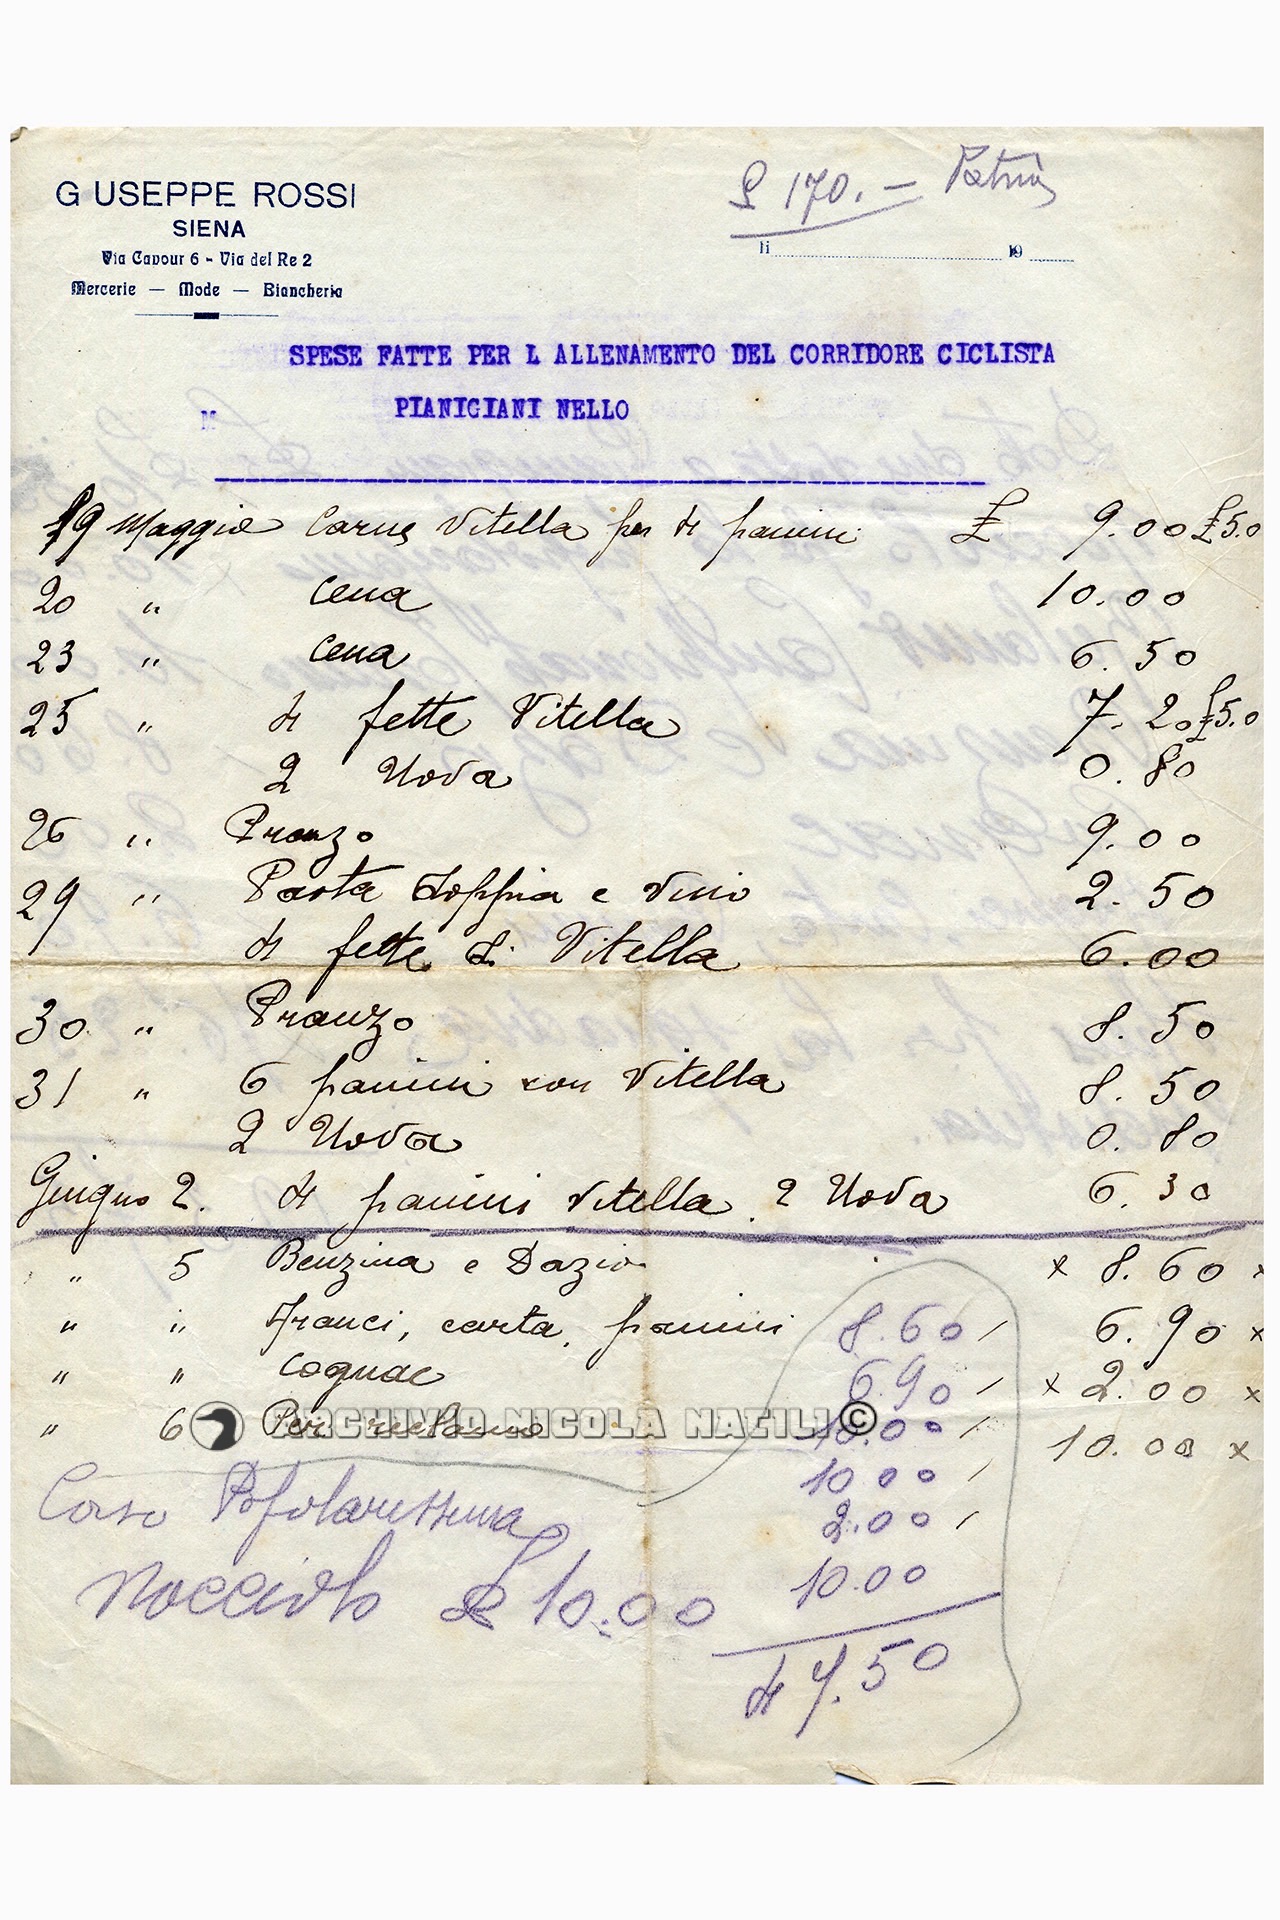 G USEPPE ROSSI
SIENA
Via Cavour 6 - Via del Re 2
Mercerie — Mode — Biancheria
£ 170. —
li 19
SPESE FATTE PER L ALLENAMENTO DEL CORRIDORE CICLISTA
PIANIGIANI NELLO
M
19 Maggio Carne Vitella per 4 panini £ 9.00 £5.0
20 " Cena 10.00
23 " Cena 6.50
25 " 4 fette Vitella 7.20 £5.0
2 Uova 0.80
26 " Pranzo 9.00
29 " Pasta doppia e vino 2.50
4 fette di Vitella 6.00
30 " Pranzo 8.50
31 " 6 panini con Vitella 8.50
2 Uova 0.80
Giugno 2. 4 panini Vitella 2 Uova 6.30
" 5 Benzina e Dazio x 8.60 x
" " Aranci, carta, panini 8.60 / 6.90 x
" " Cognac 6.90 / x 2.00 x
" 6 Per reclamo 10.00 / 10.00 x
ARCHIVIO NICOLA NATILI ©
10.00 /
Corso Popolarissima 2.00 /
Nocciolo £ 10.00 10.00
47.50